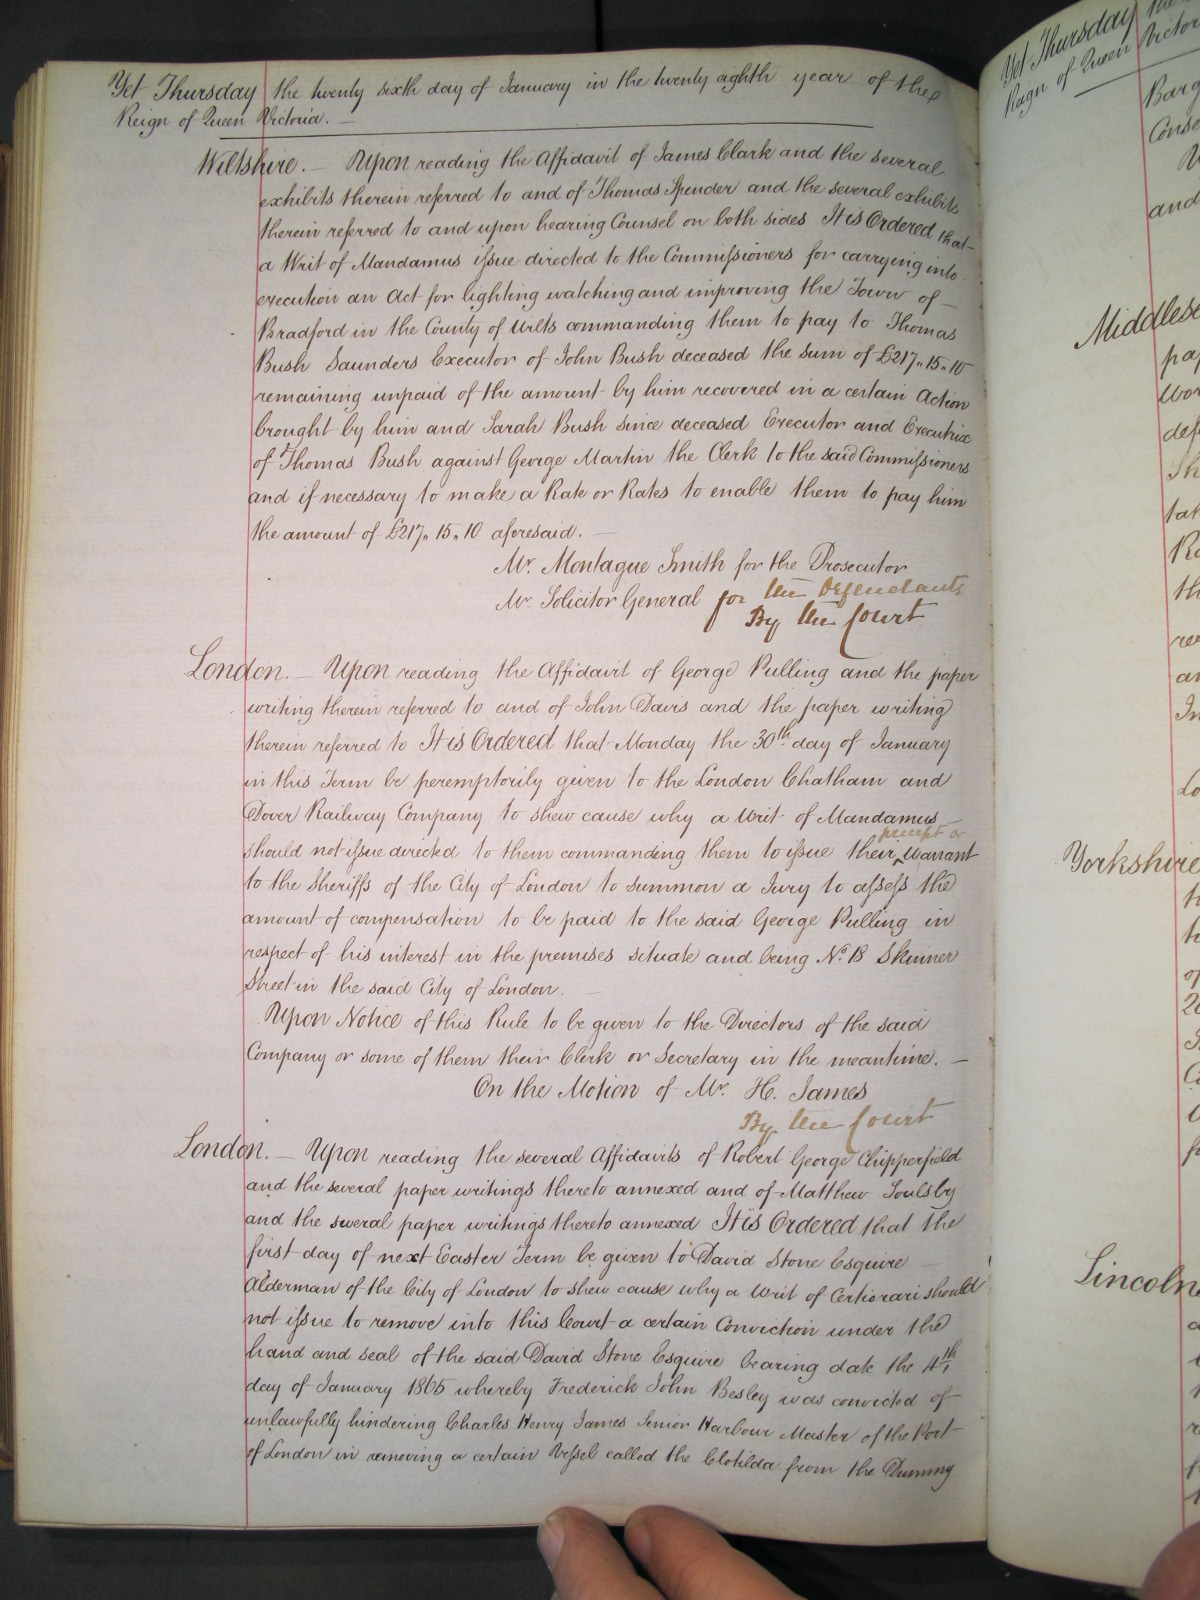 Yet Thursday the twenty sixth day of January in the twenty eighth year of the
Reign of Queen Victoria. —
Wiltshire. — Upon reading the Affidavit of James Clark and the several
exhibits therein referred to and of Thomas Spender and the several exhibits
therein referred to and upon hearing Counsel on both sides It is Ordered that
a Writ of Mandamus issue directed to the Commissioners for carrying into
execution an Act for lighting watching and improving the Town of
Bradford in the County of Wilts commanding them to pay to Thomas
Bush Saunders Executor of John Bush deceased the sum of £217.. 15.. 10
remaining unpaid of the amount by him recovered in a certain Action
brought by him and Sarah Bush since deceased Executor and Executrix
of Thomas Bush against George Martin the Clerk to the said Commissioners
and if necessary to make a Rate or Rates to enable them to pay him
the amount of £217.. 15.. 10 aforesaid. —
Mr. Montague Smith for the Prosecutor
Mr. Solicitor General for the Defendants
By the Court
London. — Upon reading the Affidavit of George Pulling and the paper
writing therein referred to and of John Davis and the paper writing
therein referred to It is Ordered that Monday the 30th day of January
in this Term be peremptorily given to the London Chatham and
Dover Railway Company to shew cause why a Writ of Mandamus
precept or
should not issue directed to them commanding them to issue their Warrant
to the Sheriffs of the City of London to summon a Jury to assess the
amount of compensation to be paid to the said George Pulling in
respect of his interest in the premises situate and being No. 18 Skinner
Street in the said City of London. —
Upon Notice of this Rule to be given to the Directors of the said
Company or some of them their Clerk or Secretary in the meantime. —
On the Motion of Mr. H. James
By the Court
London. — Upon reading the several Affidavits of Robert George Chipperfield
and the several paper writings thereto annexed and of Matthew Soulsby
and the several paper writings thereto annexed It is Ordered that the
first day of next Easter Term be given to David Stone Esquire
Alderman of the City of London to shew cause why a Writ of Certiorari should
not issue to remove into this Court a certain Conviction under the
hand and seal of the said David Stone Esquire bearing date the 4th
day of January 1865 whereby Frederick John Besley was convicted of
unlawfully hindering Charles Henry James Senior Harbour Master of the Port
of London in removing a certain Vessel called the Clotilda from the Dummy
Yet Thursday the
Reign of Queen Victor
Barg
Conse
and
Middlese
pap
Wor
def
Sh
tat
Ra
th
rec
an
In
Lo
Yorkshire
Lincoln